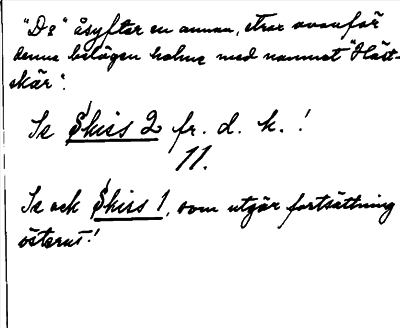 "D:o" åsyftar en annan, strax ovanför
denna belägen holme med namnet "Häst-
skär".
Se Skiss 2 fr. d. k.!
11.
Se och Skiss 1, som utgör fortsättning
österut!